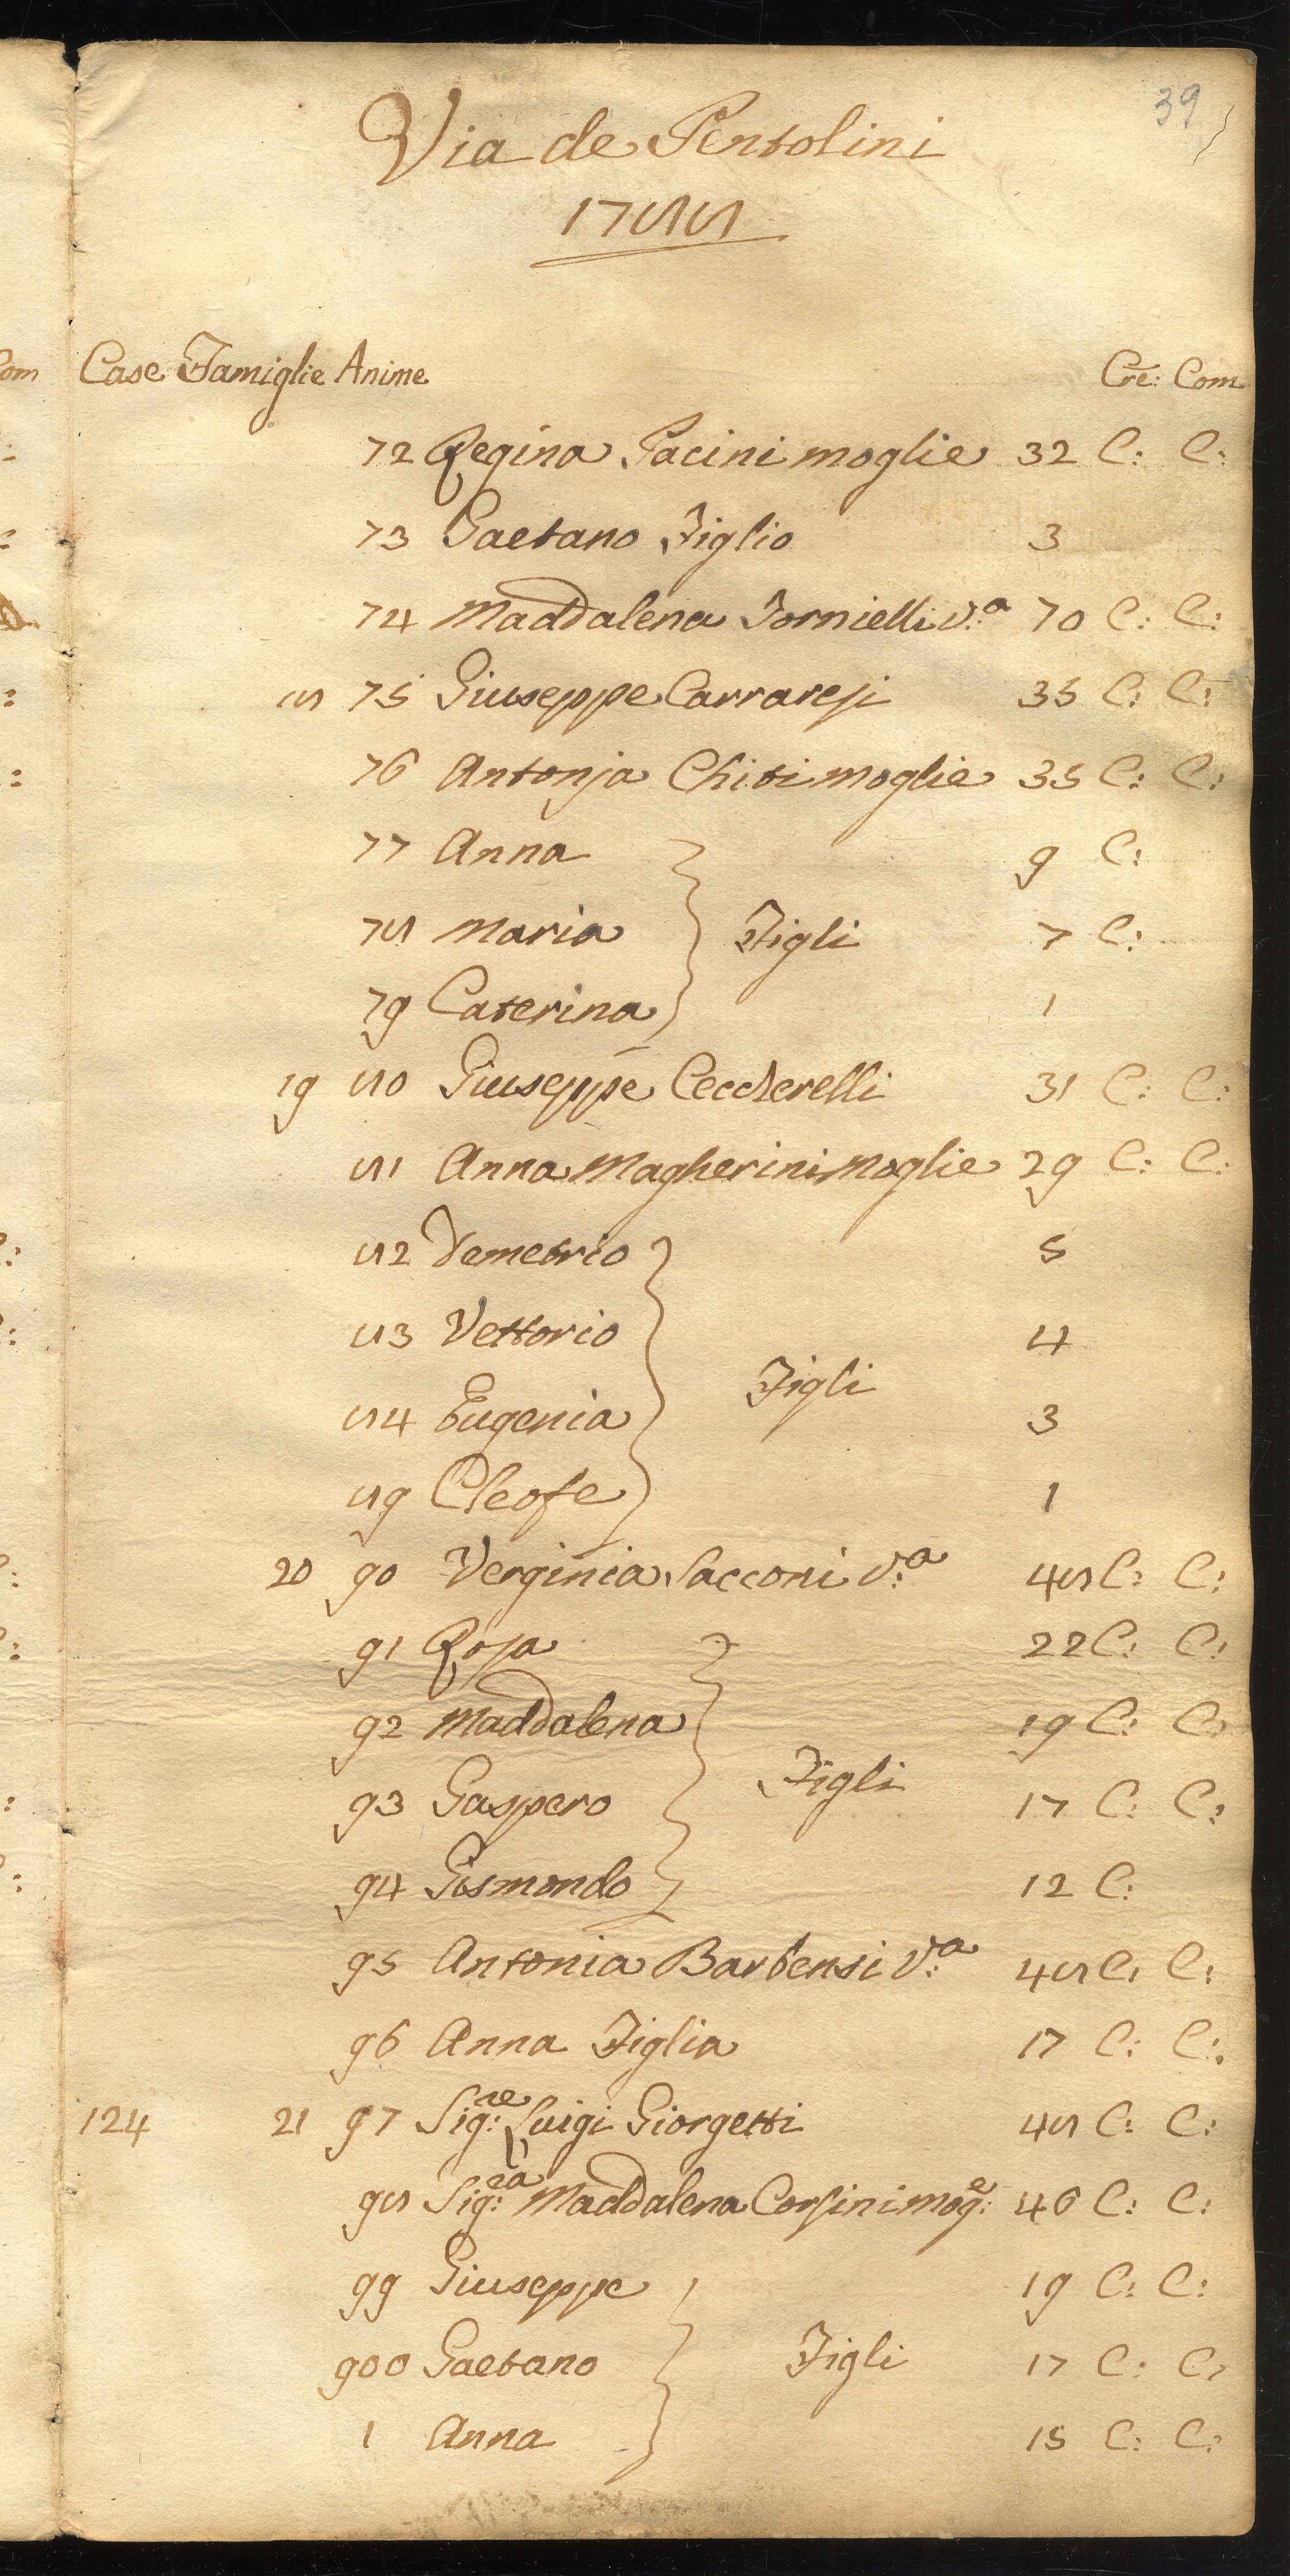 39
Via de Pentolini
1788
Case Famiglie Anime Cre: Com
72 Regina Pacini moglie 32 C: C:
73 Gaetano Figlio 3
74 Maddalena Fornielli v:a 70 C: C:
8 75 Giuseppe Carraresi 35 C: C:
76 Antonja Chiti moglie 35 C: C:
77 Anna 9 C:
78 Maria Figli 7 C:
79 Caterina 1
19 80 Giuseppe Ceccherelli 31 C: C:
81 Anna Magherini Moglie 29 C: C:
82 Demetrio 5
83 Vettorio 4
Figli
84 Eugenia 3
89 Cleofe 1
20 90 Verginia Sacconi v:a 48 C: C:
91 Rosa 22 C: C:
92 Maddalena 19 C: C:
Figli
93 Gaspero 17 C: C:
94 Gismondo 12 C:
95 Antonia Barbensi v:a 48 C: C:
96 Anna Figlia 17 C: C:
124 21 97 Sig:re Luigi Giorgetti 48 C: C:
98 Sig:ra Maddalena Corsini mog:e 46 C: C:
99 Giuseppe 19 C: C:
900 Gaetano Figli 17 C: C:
1 Anna 15 C: C: